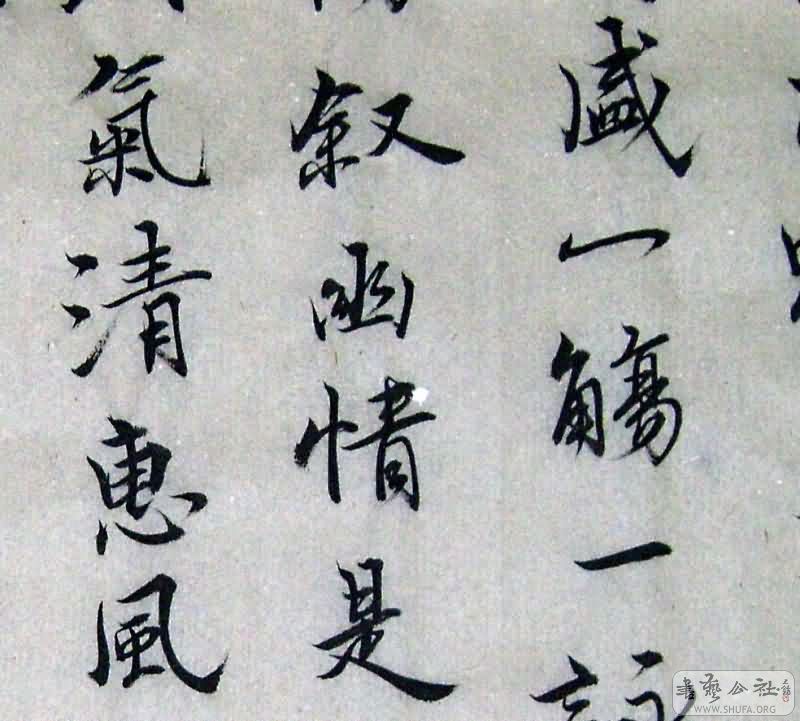 盛一觴一詠
叙幽情是
氣清惠風
書藝公社
WWW.SHUFA.ORG